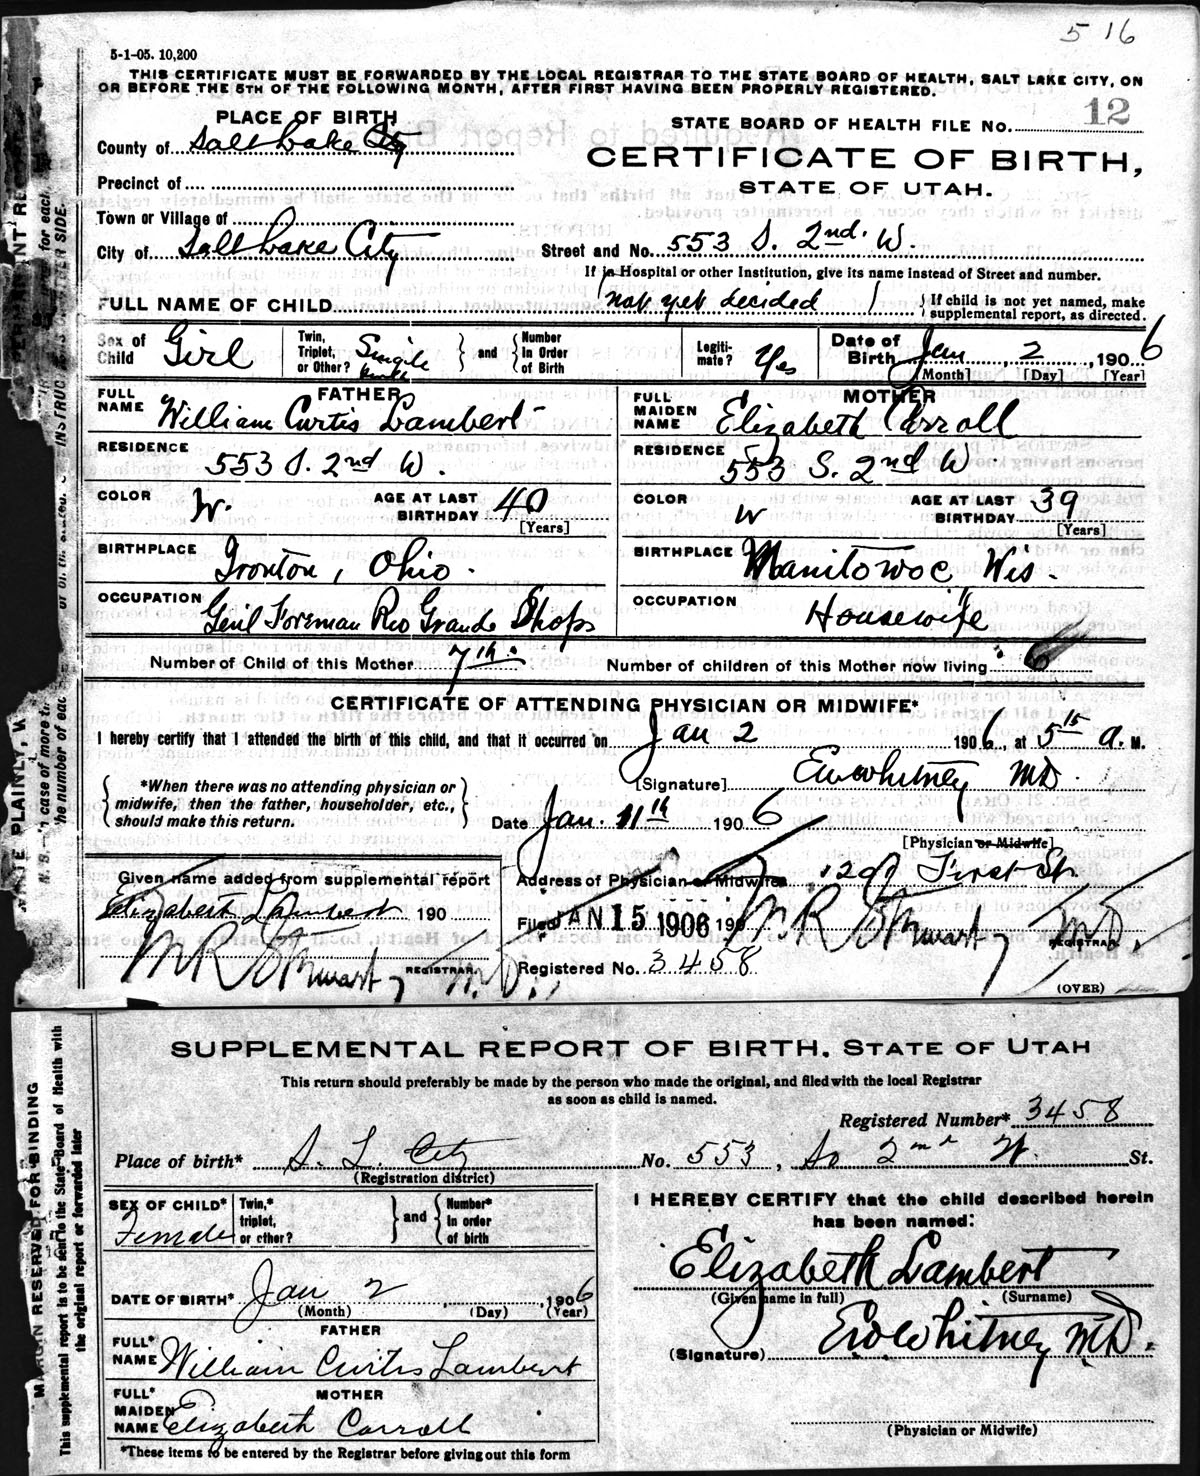 5 16
5-1-05. 10,200
THIS CERTIFICATE MUST BE FORWARDED BY THE LOCAL REGISTRAR TO THE STATE BOARD OF HEALTH, SALT LAKE CITY, ON
OR BEFORE THE 5TH OF THE FOLLOWING MONTH, AFTER FIRST HAVING BEEN PROPERLY REGISTERED.
PLACE OF BIRTH
County of Salt Lake City
Precinct of
Town or Village of
City of Salt Lake City
STATE BOARD OF HEALTH FILE No. 12
CERTIFICATE OF BIRTH,
STATE OF UTAH.
Street and No. 553 S. 2nd. W.
If in Hospital or other Institution, give its name instead of Street and number.
FULL NAME OF CHILD (not yet decided) { If child is not yet named, make
supplemental report, as directed.
Sex of Child Girl
Twin, Triplet, or Other? Single birth } and { Number In Order of Birth
Legiti- mate? Yes
Date of Birth Jan 2, 1906
[Month] [Day] [Year]
FATHER
FULL NAME William Curtis Lambert
RESIDENCE 553 S. 2nd W.
COLOR W. AGE AT LAST BIRTHDAY 40 [Years]
BIRTHPLACE Ironton, Ohio.
OCCUPATION Genl Foreman Rio Grande Shops
MOTHER
FULL MAIDEN NAME Elizabeth Carroll
RESIDENCE 553 S. 2nd W
COLOR W AGE AT LAST BIRTHDAY 39 [Years]
BIRTHPLACE Manitowoc, Wis.
OCCUPATION Housewife
Number of Child of this Mother 7th. Number of children of this Mother now living 6
CERTIFICATE OF ATTENDING PHYSICIAN OR MIDWIFE*
I hereby certify that I attended the birth of this child, and that it occurred on Jan 2 1906, at 5 15 A. M.
{ *When there was no attending physician or
midwife, then the father, householder, etc.,
should make this return. }
[Signature] E W Whitney MD.
Date Jan. 11th 1906
[Physician or Midwife]
Given name added from supplemental report
Elizabeth Lambert 190
REGISTRAR. M.D.
Address of Physician or Midwife First St.
Filed JAN 15 1906 190
REGISTRAR. M.D.
Registered No. 3458
(OVER)
SUPPLEMENTAL REPORT OF BIRTH. STATE OF UTAH
This return should preferably be made by the person who made the original, and filed with the local Registrar
as soon as child is named.
Registered Number* 3458
Place of birth* S. L. City No. 553, So 2nd W. St.
(Registration district)
SEX OF CHILD* Female
Twin,* triplet, or other? } and { Number* In order of birth
DATE OF BIRTH* Jan 2, 1906
(Month) (Day) (Year)
FATHER
FULL* NAME William Curtis Lambert
MOTHER
FULL* MAIDEN NAME Elizabeth Carroll
*These items to be entered by the Registrar before giving out this form
I HEREBY CERTIFY that the child described herein
has been named:
Elizabeth Lambert
(Given name in full) (Surname)
(Signature) E W Whitney MD.
(Physician or Midwife)
MARGIN RESERVED FOR BINDING
This supplemental report is to be sent to the State Board of Health with
the original report or forwarded later